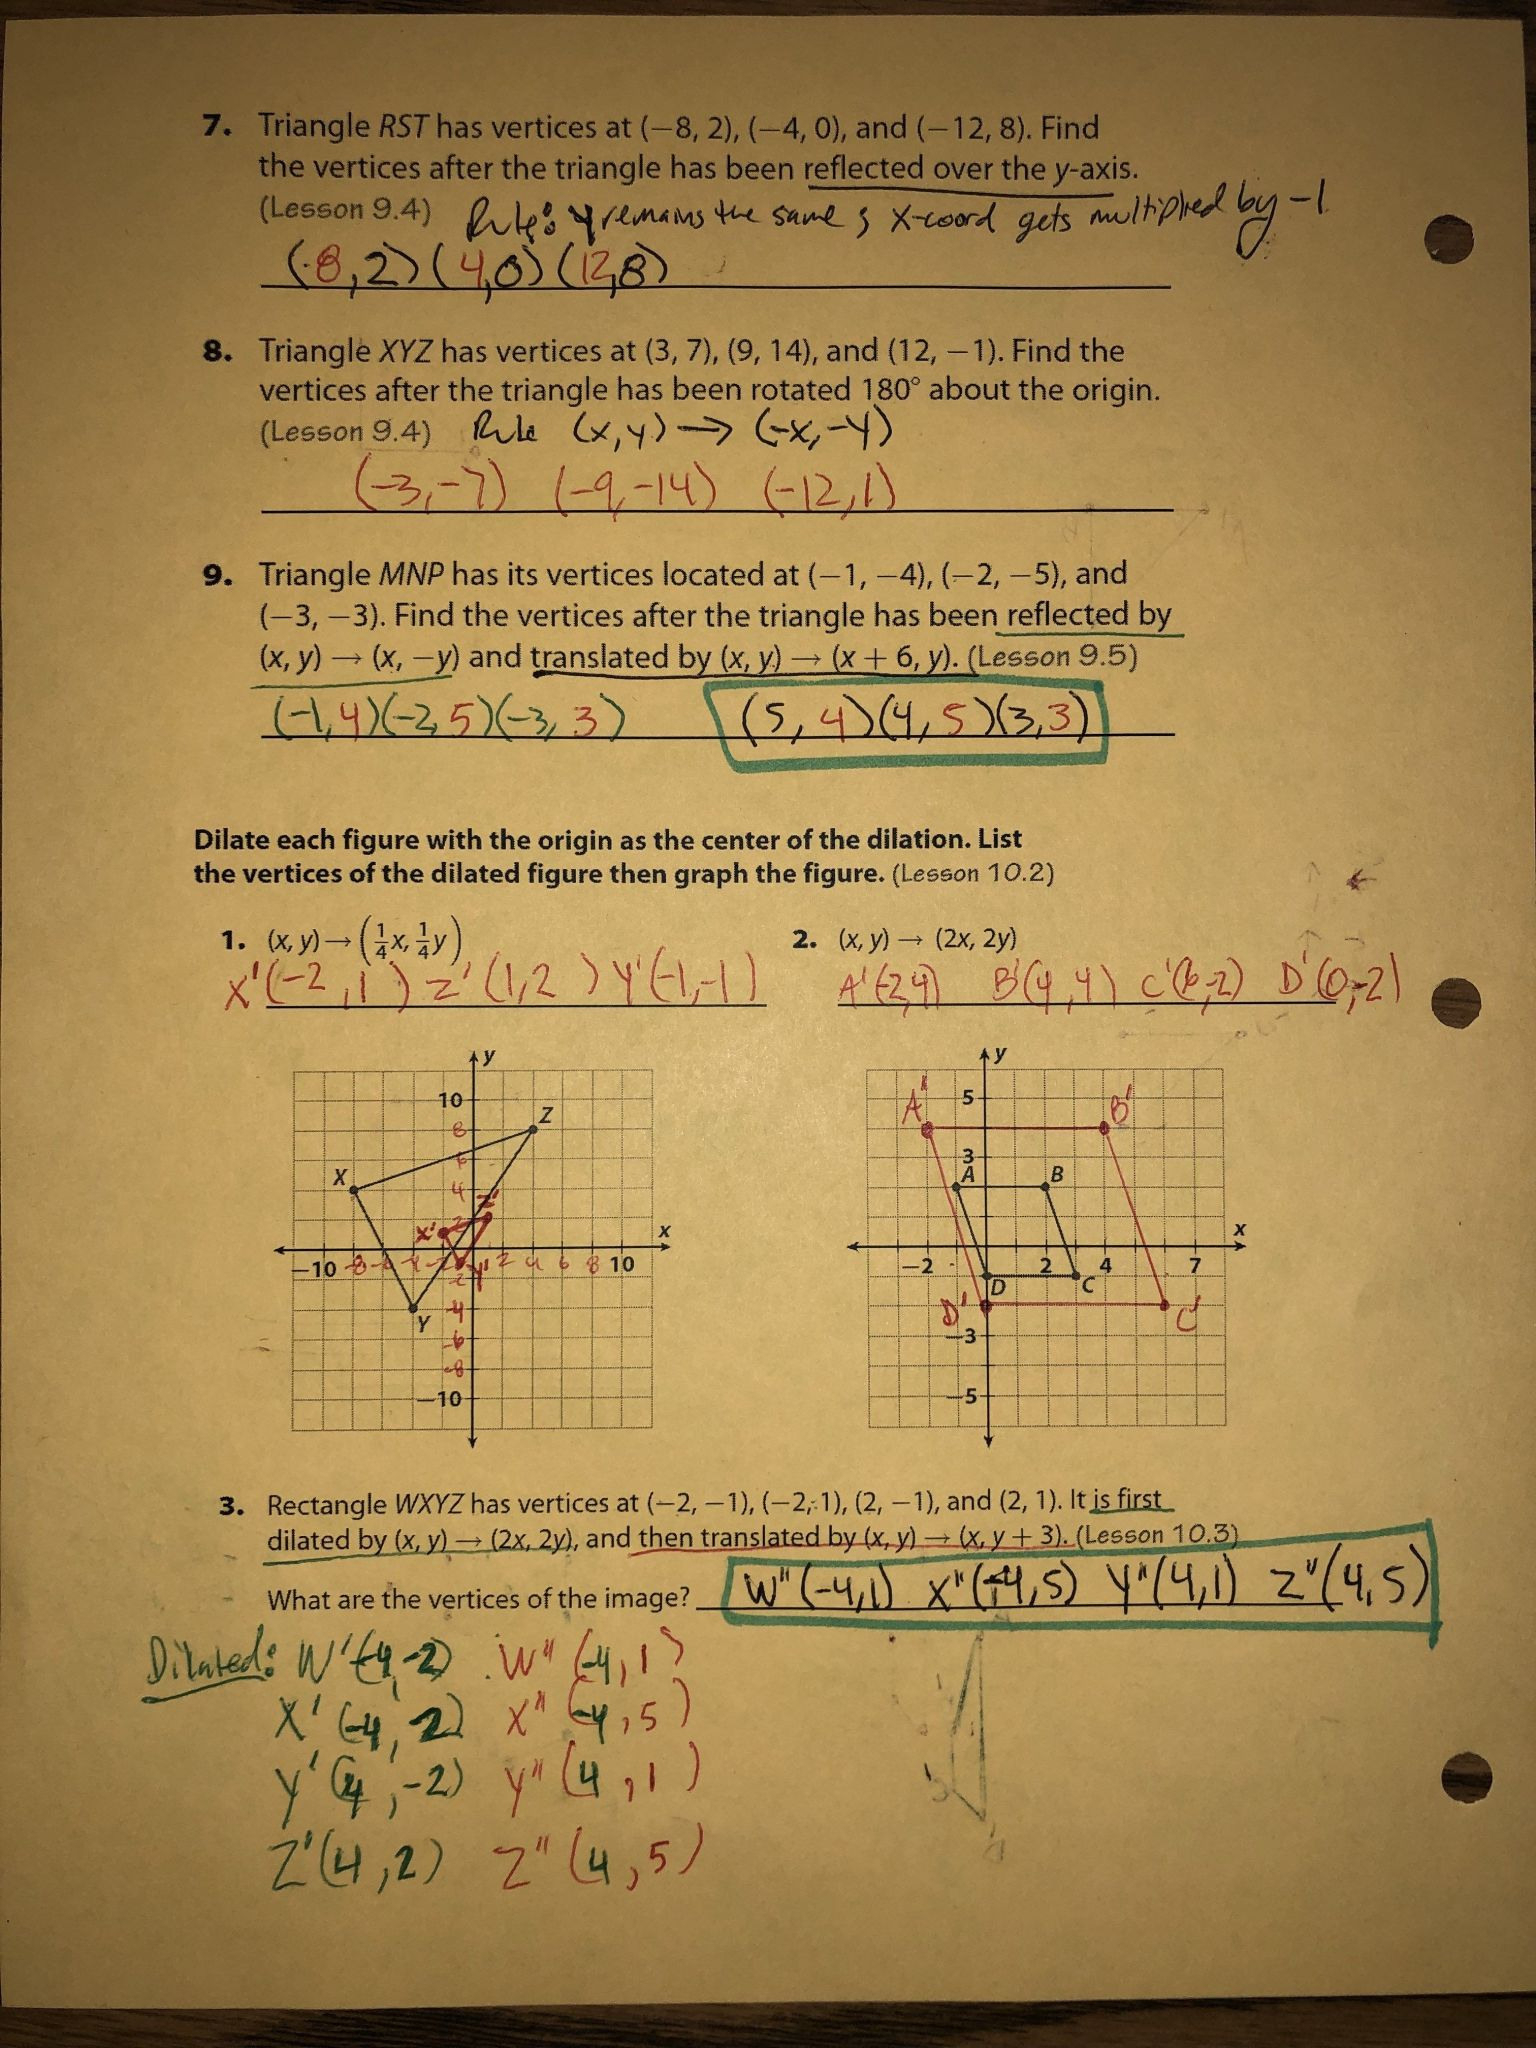 7. Triangle RST has vertices at (−8, 2), (−4, 0), and (−12, 8). Find
the vertices after the triangle has been reflected over the y-axis.
(Lesson 9.4) Rule: y remains the same & x-coord gets multiplied by -1
(8,2)(4,0)(12,8)
8. Triangle XYZ has vertices at (3, 7), (9, 14), and (12, −1). Find the
vertices after the triangle has been rotated 180° about the origin.
(Lesson 9.4) Rule (x,y) → (-x,-y)
(-3,-7) (-9,-14) (-12,1)
9. Triangle MNP has its vertices located at (−1, −4), (−2, −5), and
(−3, −3). Find the vertices after the triangle has been reflected by
(x, y) → (x, −y) and translated by (x, y) → (x + 6, y). (Lesson 9.5)
(-1,4)(-2,5)(-3,3) (5,4)(4,5)(3,3)
Dilate each figure with the origin as the center of the dilation. List
the vertices of the dilated figure then graph the figure. (Lesson 10.2)
1. (x, y) → (1/4 x, 1/4 y)
X'(-2,1) Z'(1,2) Y'(-1,-1)
2. (x, y) → (2x, 2y)
A'(-2,4) B'(4,4) C'(6,-2) D'(0,-2)
y
10
Z
8
6
X
4
Z'
2
X'
x
−10 -8 -6 -4 -2 Y' 2 4 6 8 10
-2
-4
Y
-6
-8
−10
y
A' 5 B'
3
A B
x
−2 2 4 7
D C
D' C'
−3
−5
3. Rectangle WXYZ has vertices at (−2, −1), (−2, 1), (2, −1), and (2, 1). It is first
dilated by (x, y) → (2x, 2y), and then translated by (x, y) → (x, y + 3). (Lesson 10.3)
What are the vertices of the image? W"(-4,1) X"(-4,5) Y"(4,1) Z"(4,5)
Dilated: W'(-4,-2) W"(-4,1)
X'(-4,2) X"(-4,5)
Y'(4,-2) Y"(4,1)
Z'(4,2) Z"(4,5)